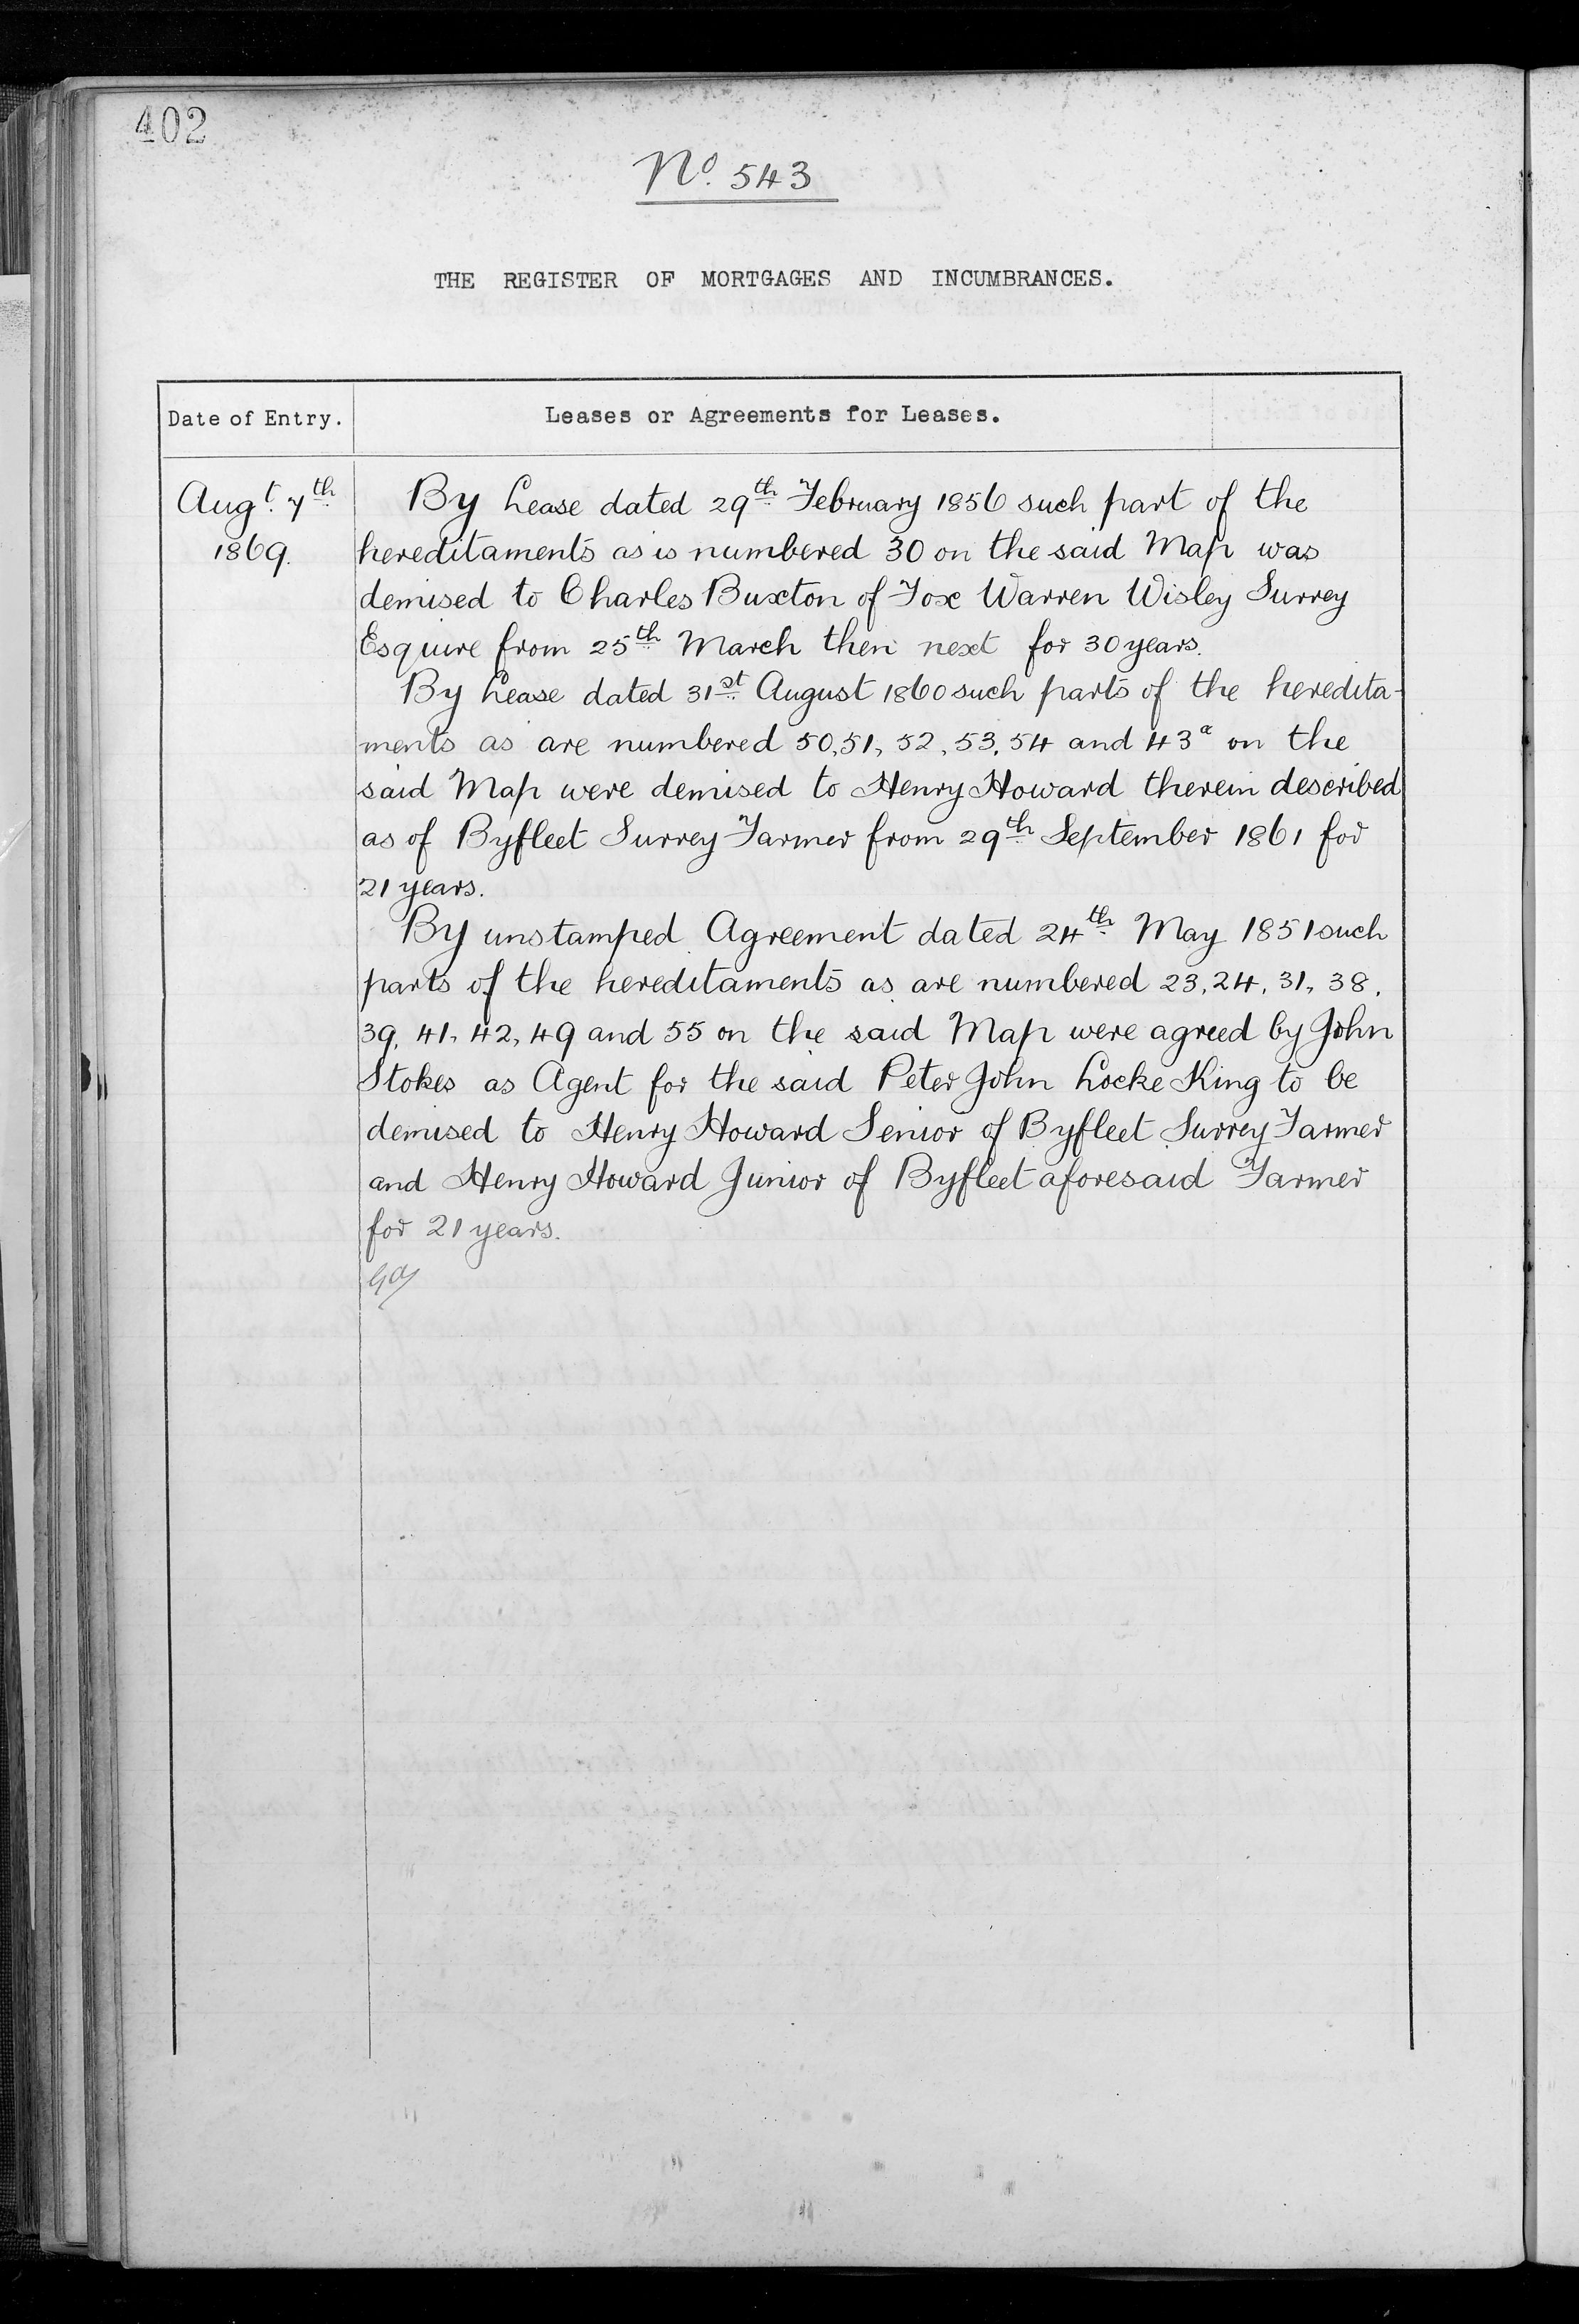 402
No. 543
THE REGISTER OF MORTGAGES AND INCUMBRANCES.
Date of Entry.
Leases or Agreements for Leases.
Augt. 7th
1869.
By Lease dated 29th February 1856 such part of the
hereditaments as is numbered 30 on the said Map was
demised to Charles Buxton of Fox Warren Wisley Surrey
Esquire from 25th March then next for 30 years.
By Lease dated 31st August 1860 such parts of the heredita-
ments as are numbered 50, 51, 52, 53, 54 and 43a on the
said Map were demised to Henry Howard therein described
as of Byfleet Surrey Farmer from 29th September 1861 for
21 years.
By unstamped Agreement dated 24th May 1851 such
parts of the hereditaments as are numbered 23, 24, 31, 38,
39, 41, 42, 49 and 55 on the said Map were agreed by John
Stokes as Agent for the said Peter John Locke King to be
demised to Henry Howard Senior of Byfleet Surrey Farmer
and Henry Howard Junior of Byfleet aforesaid Farmer
for 21 years.